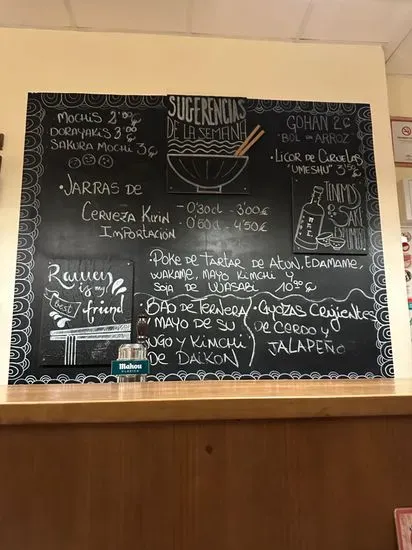 SUGERENCIAS
DE LA SEMANA
MOCHIS
DORAYAKIS 3'00
SAKURA MOCHI 3€
GOHAN 2€
"BOL DE ARROZ"
• LICOR DE CIRUELAS
"UMESHU" 3'50€
• JARRAS DE
CERVEZA KIRIN
IMPORTACIÓN
- 0'30cl - 3'00€
- 0'60cl - 4'50€
TENEMOS
SAKE
• POKE DE TARTAR DE ATÚN, EDAMAME,
WAKAME, MAYO KIMCHI Y
SOJA DE WASABI 10'90€
Ramen
is my
best
friend
• BAO DE TERNERA
Y MAYO DE SU
JUGO Y KIMCHI
DE DAIKON
• GYOZAS CRUJIENTES
DE CERDO Y
JALAPEÑO
Mahou
CLÁSICA